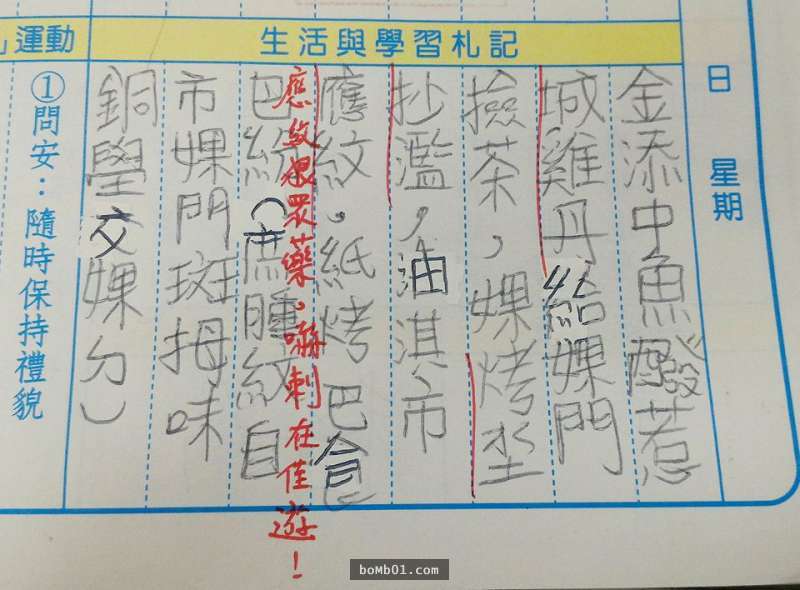 日 星期
生活與學習札記
金添中魚醱惹
城雞丹給婐門
撿茶，婐烤
抄濫，油淇市
應紋。紙烤巴食
巴紛（庶腫紋自
市婐門斑拇味
銅學交婐ㄉ）
應紋狠眾藥。嚇刺在佳遊！
運動
①問安：隨時保持禮貌
boMb01.com